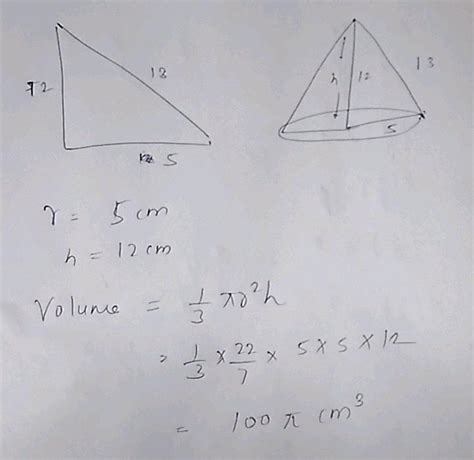 12
13
5
h
12
13
5
r = 5 cm
h = 12 cm
Volume = 1/3 πr²h
= 1/3 × 22/7 × 5 × 5 × 12
= 100 π cm³